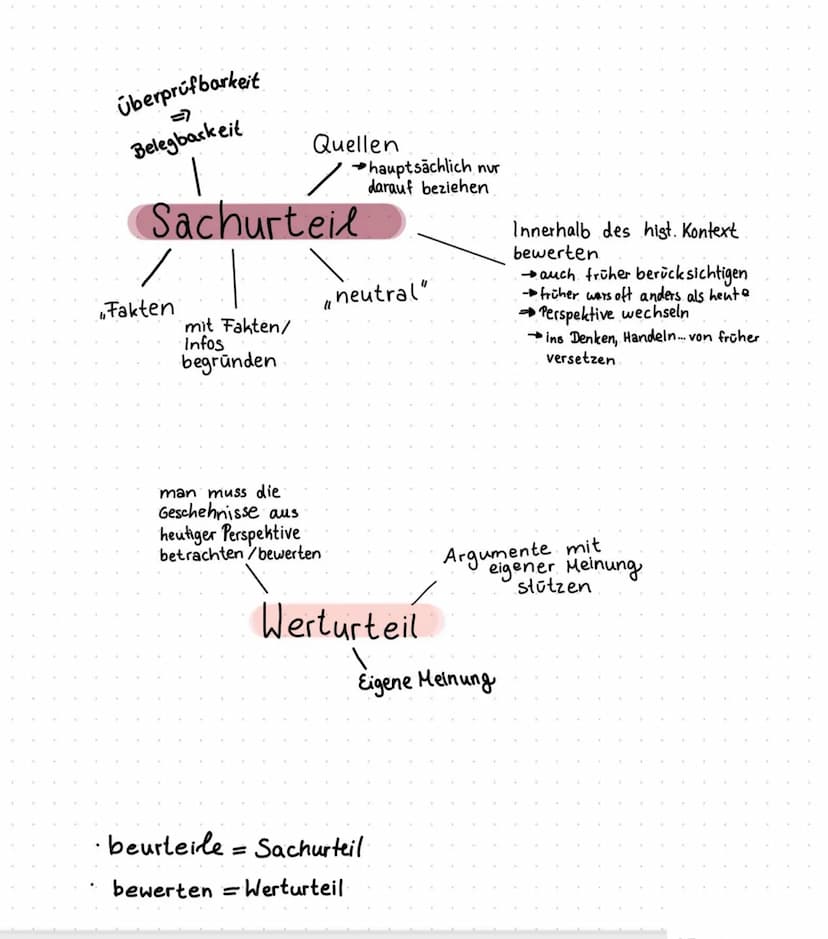 Überprüfbarkeit
⇒
Belegbarkeit
Quellen
→ hauptsächlich nur
darauf beziehen
Sachurteil
Innerhalb des hist. Kontext
bewerten
→ auch früher berücksichtigen
→ früher wars oft anders als heute
⇒ Perspektive wechseln
→ ins Denken, Handeln... von früher
versetzen
„Fakten
mit Fakten/
Infos
begründen
„neutral“
man muss die
Geschehnisse aus
heutiger Perspektive
betrachten/bewerten
Argumente mit
eigener Meinung
stützen
Werturteil
Eigene Meinung
· beurteile = Sachurteil
· bewerten = Werturteil